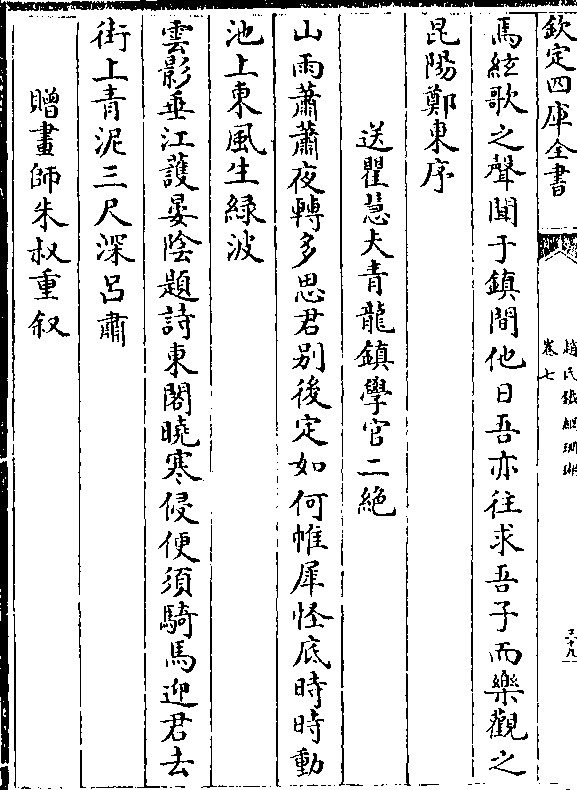 欽定四庫全書
趙氏鐵網珊瑚
卷七
三十九
馬絃歌之聲聞于鎮間他日吾亦往求吾子而樂觀之
昆陽鄭東序
送瞿慧夫青龍鎮學官二絶
山雨蕭蕭夜轉多思君别後定如何帷犀怪底時時動
池上東風生緑波
雲影垂江護晏陰題詩東閣曉寒侵便須騎馬迎君去
街上青泥三尺深吕肅
贈畫師朱叔重叙